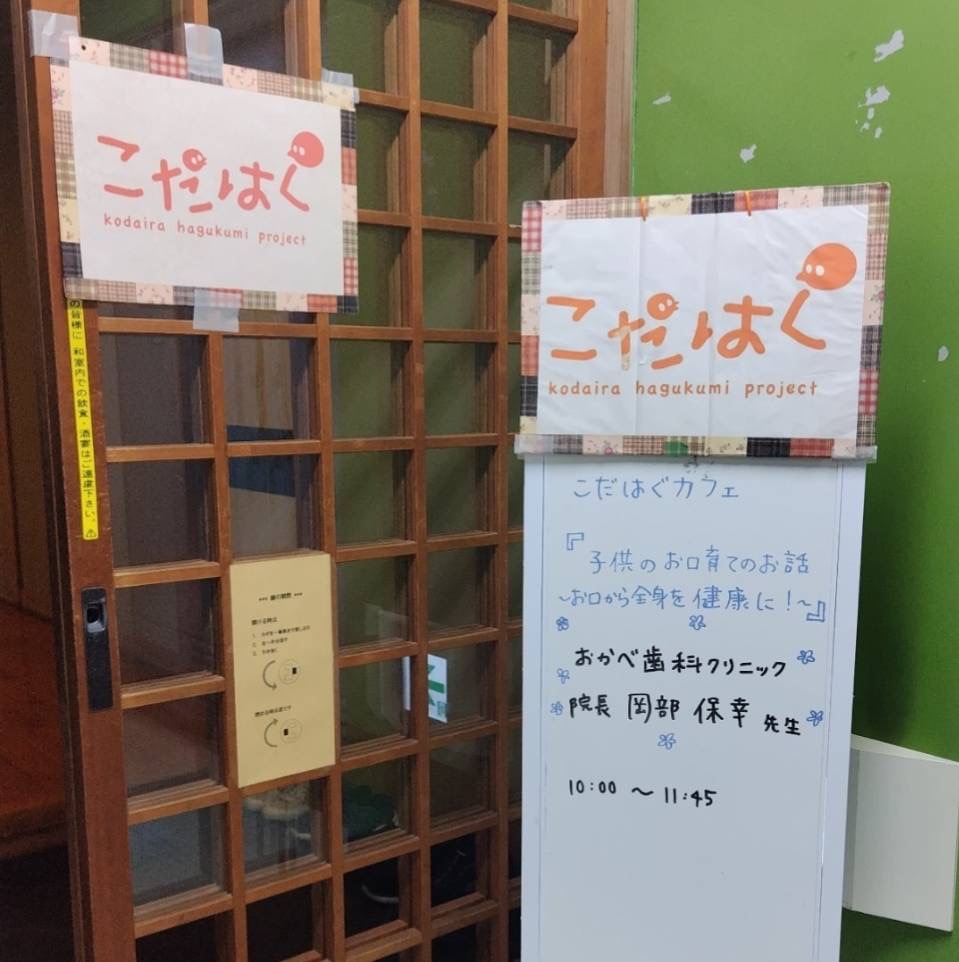 こだはぐ
kodaira hagukumi project
の皆様に 和室内での飲食・酒宴はご遠慮下さい。
こだはぐ
kodaira hagukumi project
こだはぐカフェ
『子供のお口育てのお話
~お口から全身を健康に!~』
おかべ歯科クリニック
院長 岡部 保幸 先生
10:00 〜 11:45